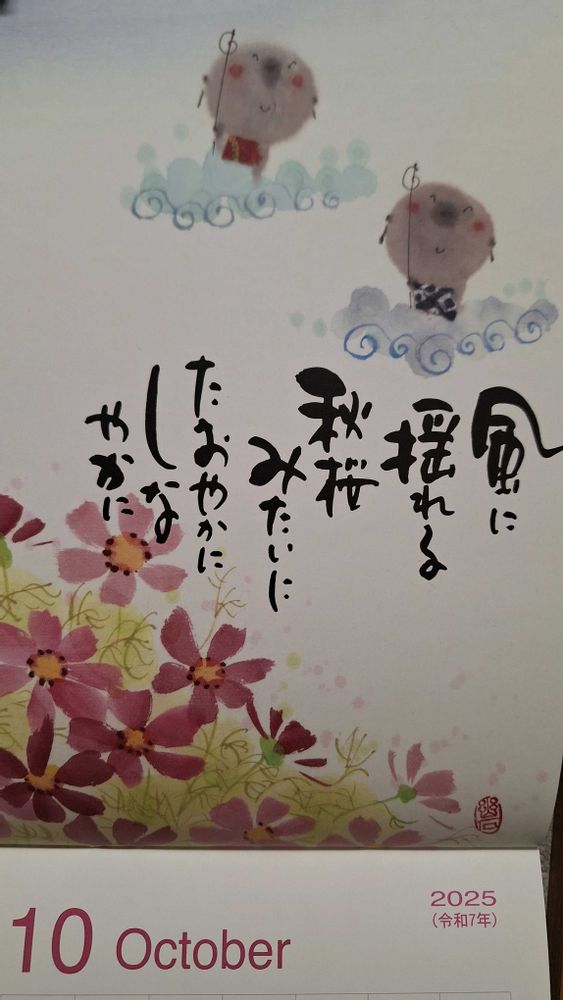 風に
揺れる
秋桜
みたいに
たおやかに
しな
やかに
10 October
2025
(令和7年)